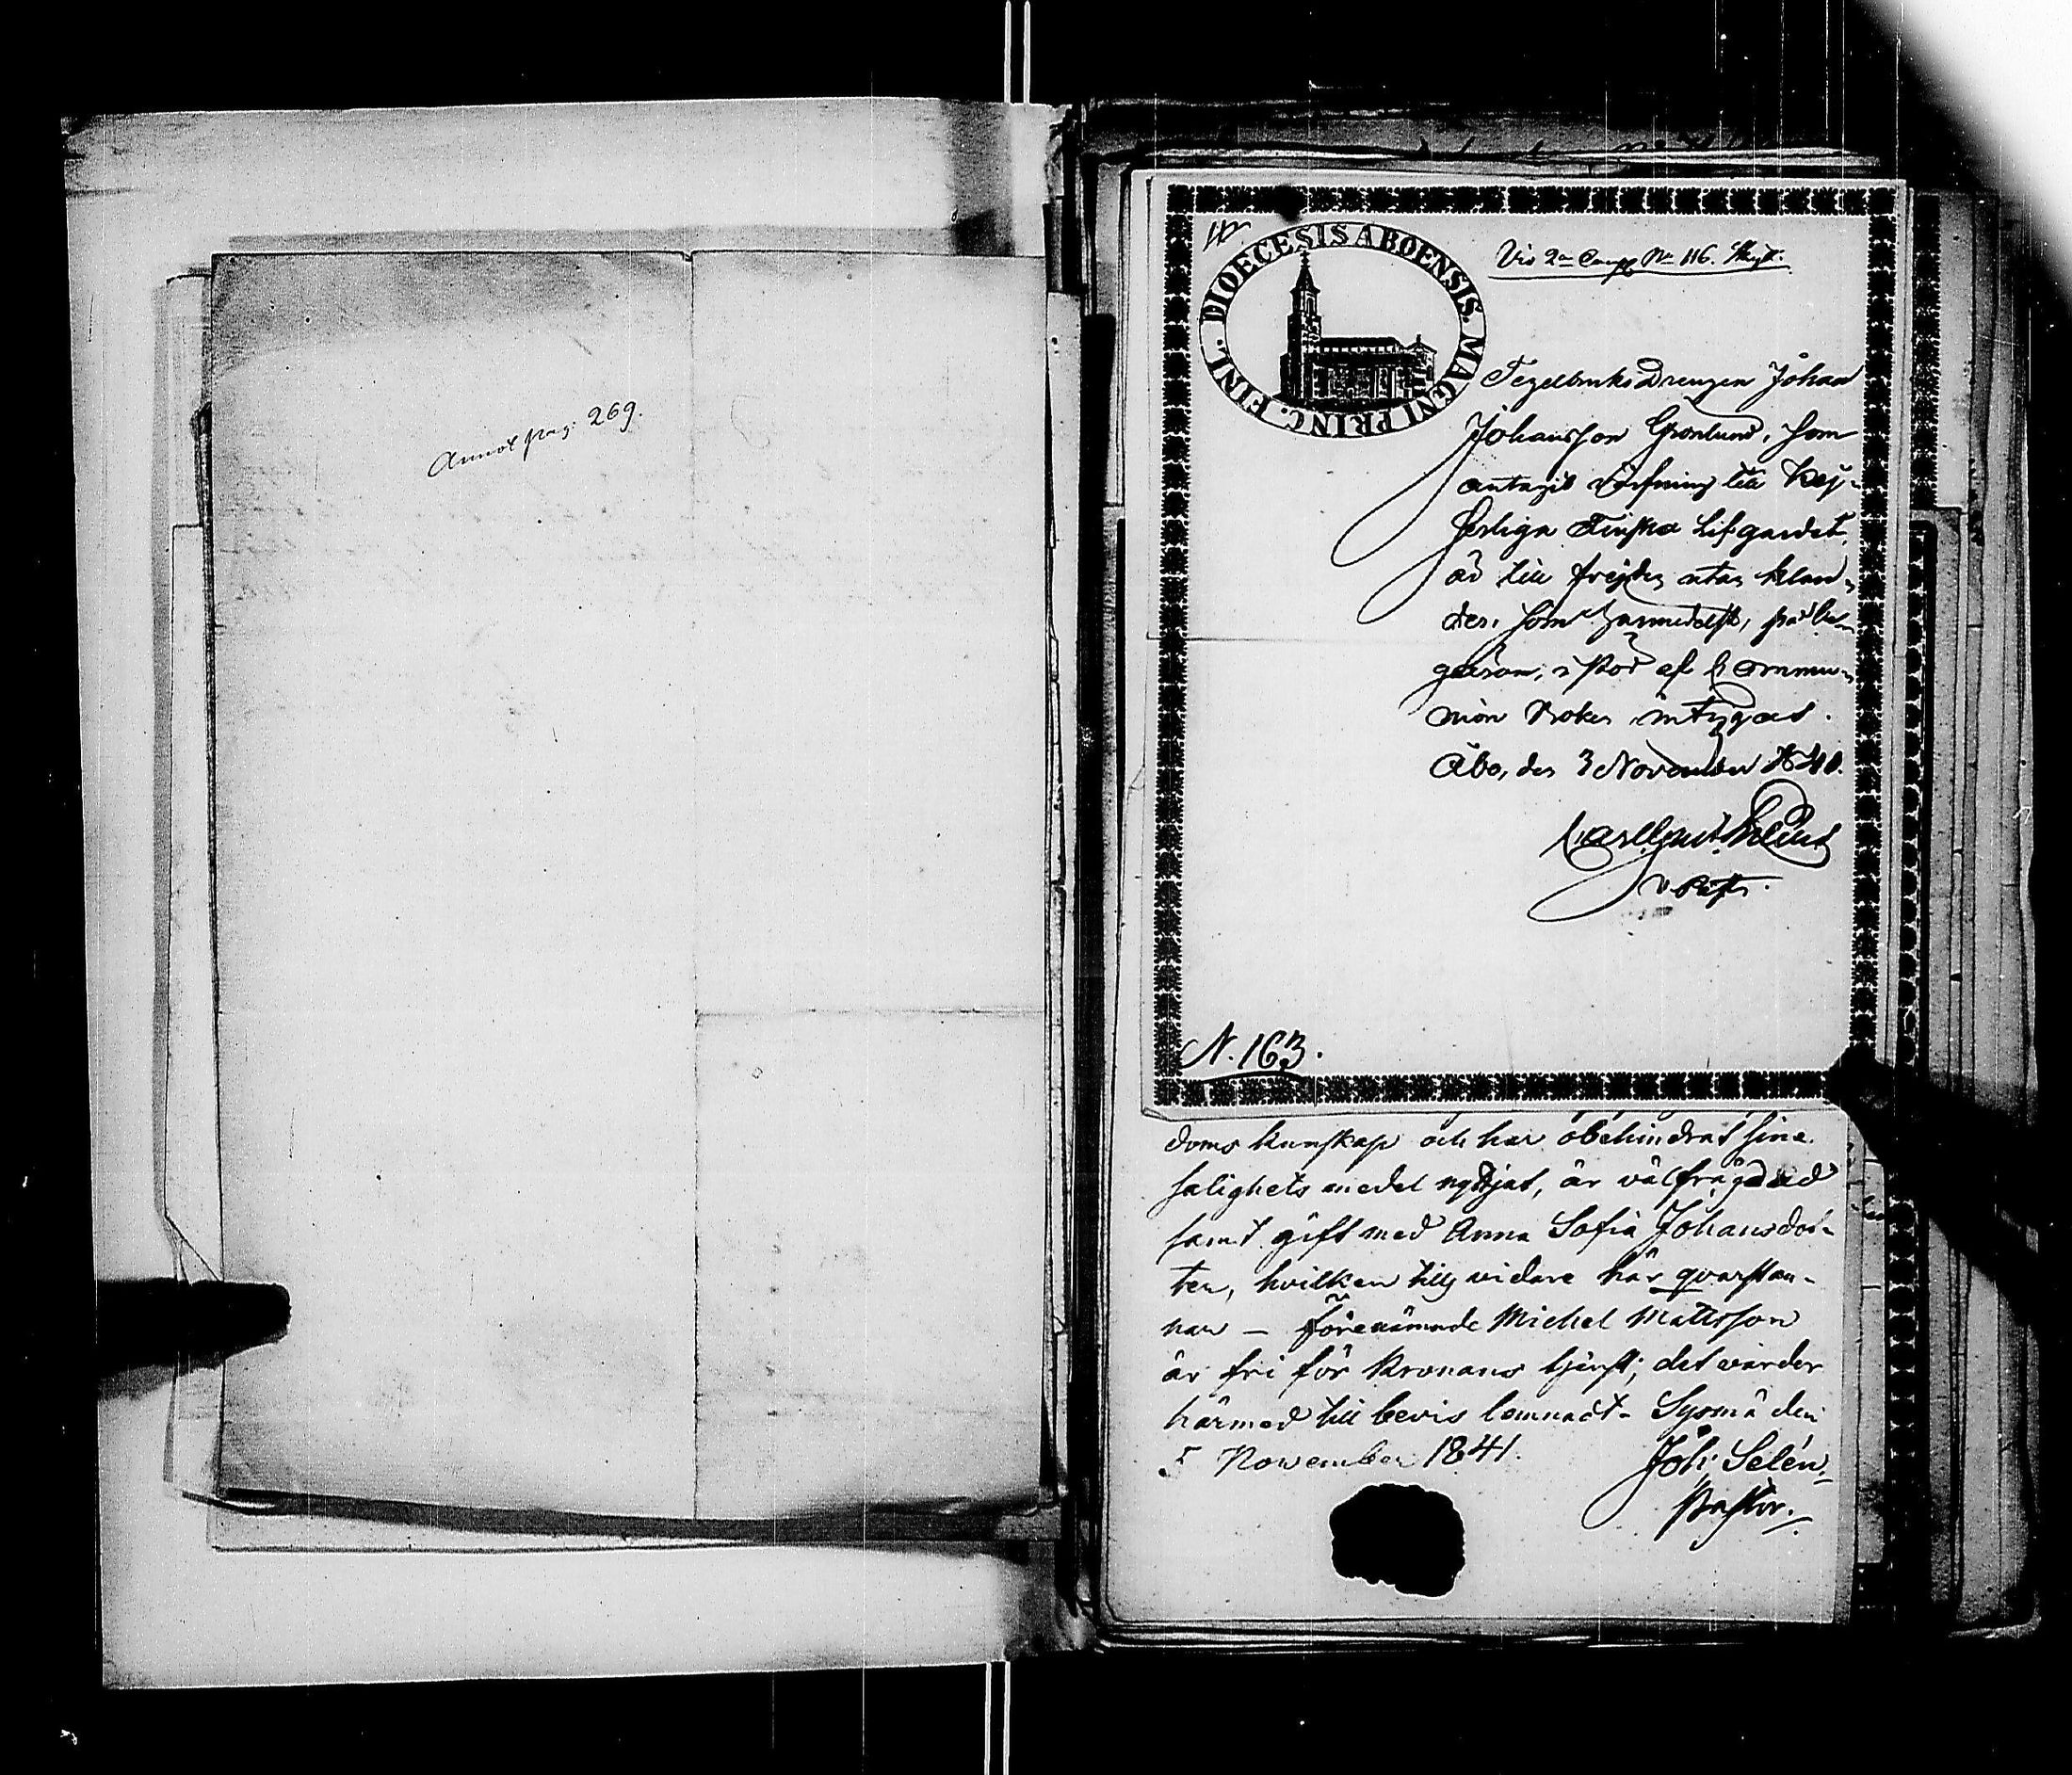 Annot pag: 269.
DIOECESIS ABOENSIS. MAGNI PRINC. FINL.
Vid 2a Comp No 116.
Tegelbruks Drengen Johan
Johansson Grönlund, som
antagit värfning till Kej-
serliga Finska Lifgardet,
är till frejden utan klan-
der. Som harmedelst, på be-
gäran, i stöd af Commu-
nion Boken intygas.
Åbo, den 3 November 1841.
v. Past.
N. 163.
doms kunskap och har obehindrat sine
salighets medel nyttjat, är välfrägdad
samt gift med Anna Sofia Johansdot-
ter, hvilken tills vidare här qvarstan-
nar – förenämnde Michel Mattsson
är fri för Kronans tjenst; det varder
härmed till bevis lemnadt. Sysmä den
5 November 1841.
Joh: Selén,
Pastor.